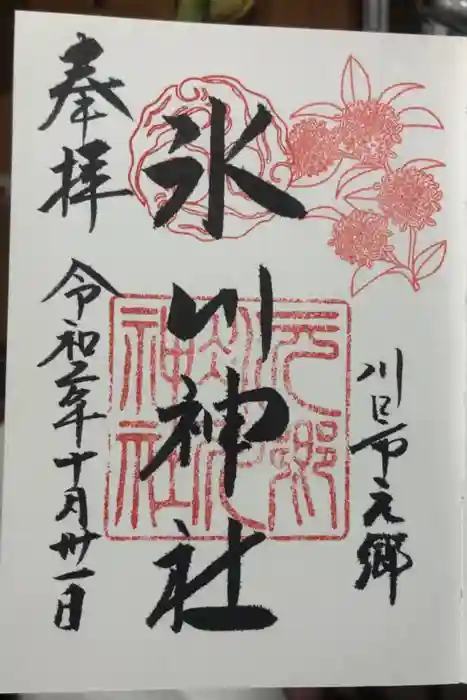 川口市元郷
氷川神社
奉拝
令和二年十月卅一日
元郷
氷川
神社